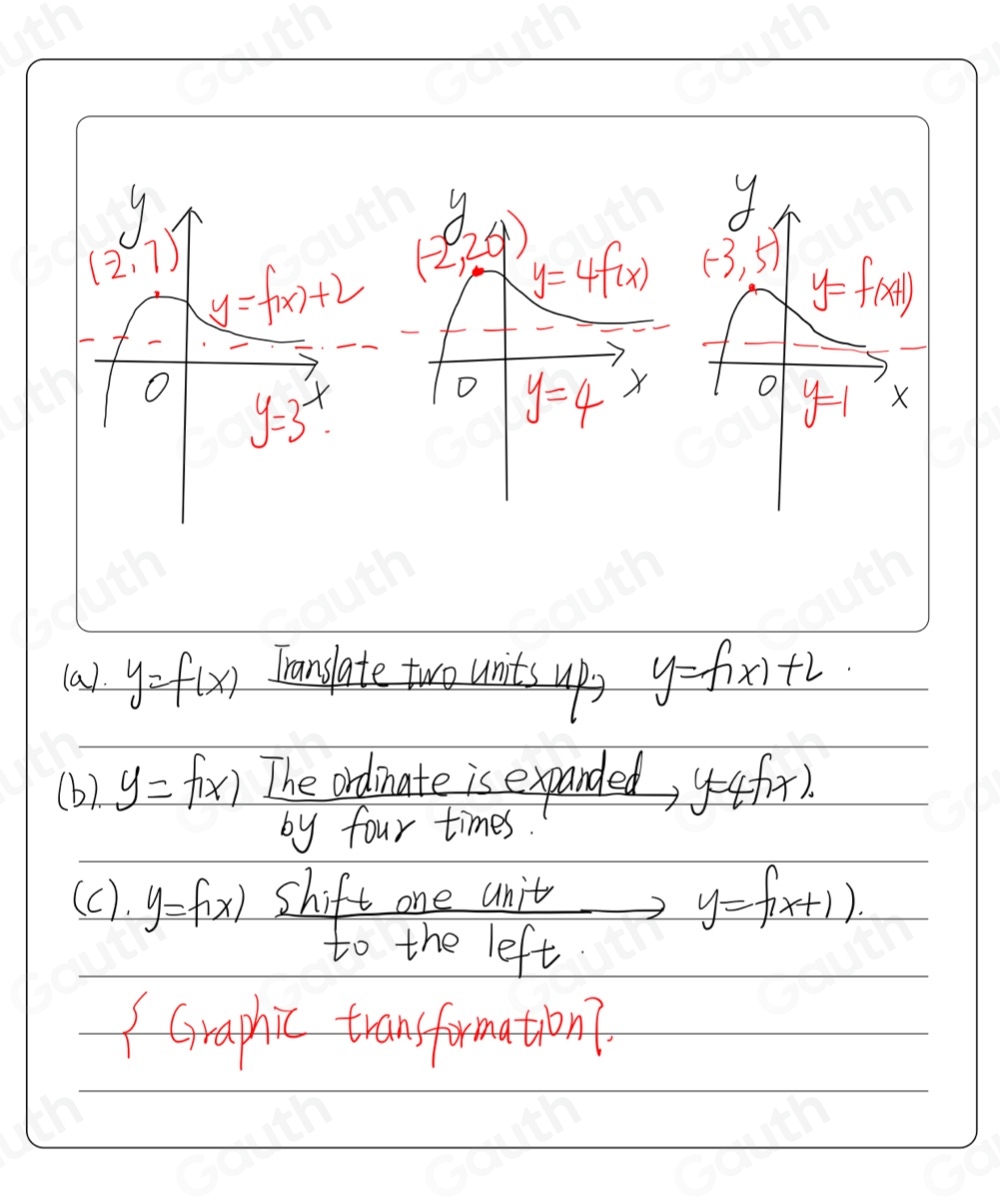 y
(2,7)
y=f(x)+2
O
x
y=3.
y
(-2,20)
y=4f(x)
O
x
y=4
y
(-3,5)
y=f(x+1)
O
x
y=1
(a). y=f(x) Translate two units up, y=f(x)+2.
(b). y=f(x) The ordinate is expanded → y=4f(x).
by four times.
(c). y=f(x) shift one unit → y=f(x+1).
to the left.
{Graphic transformation}.
Gauth